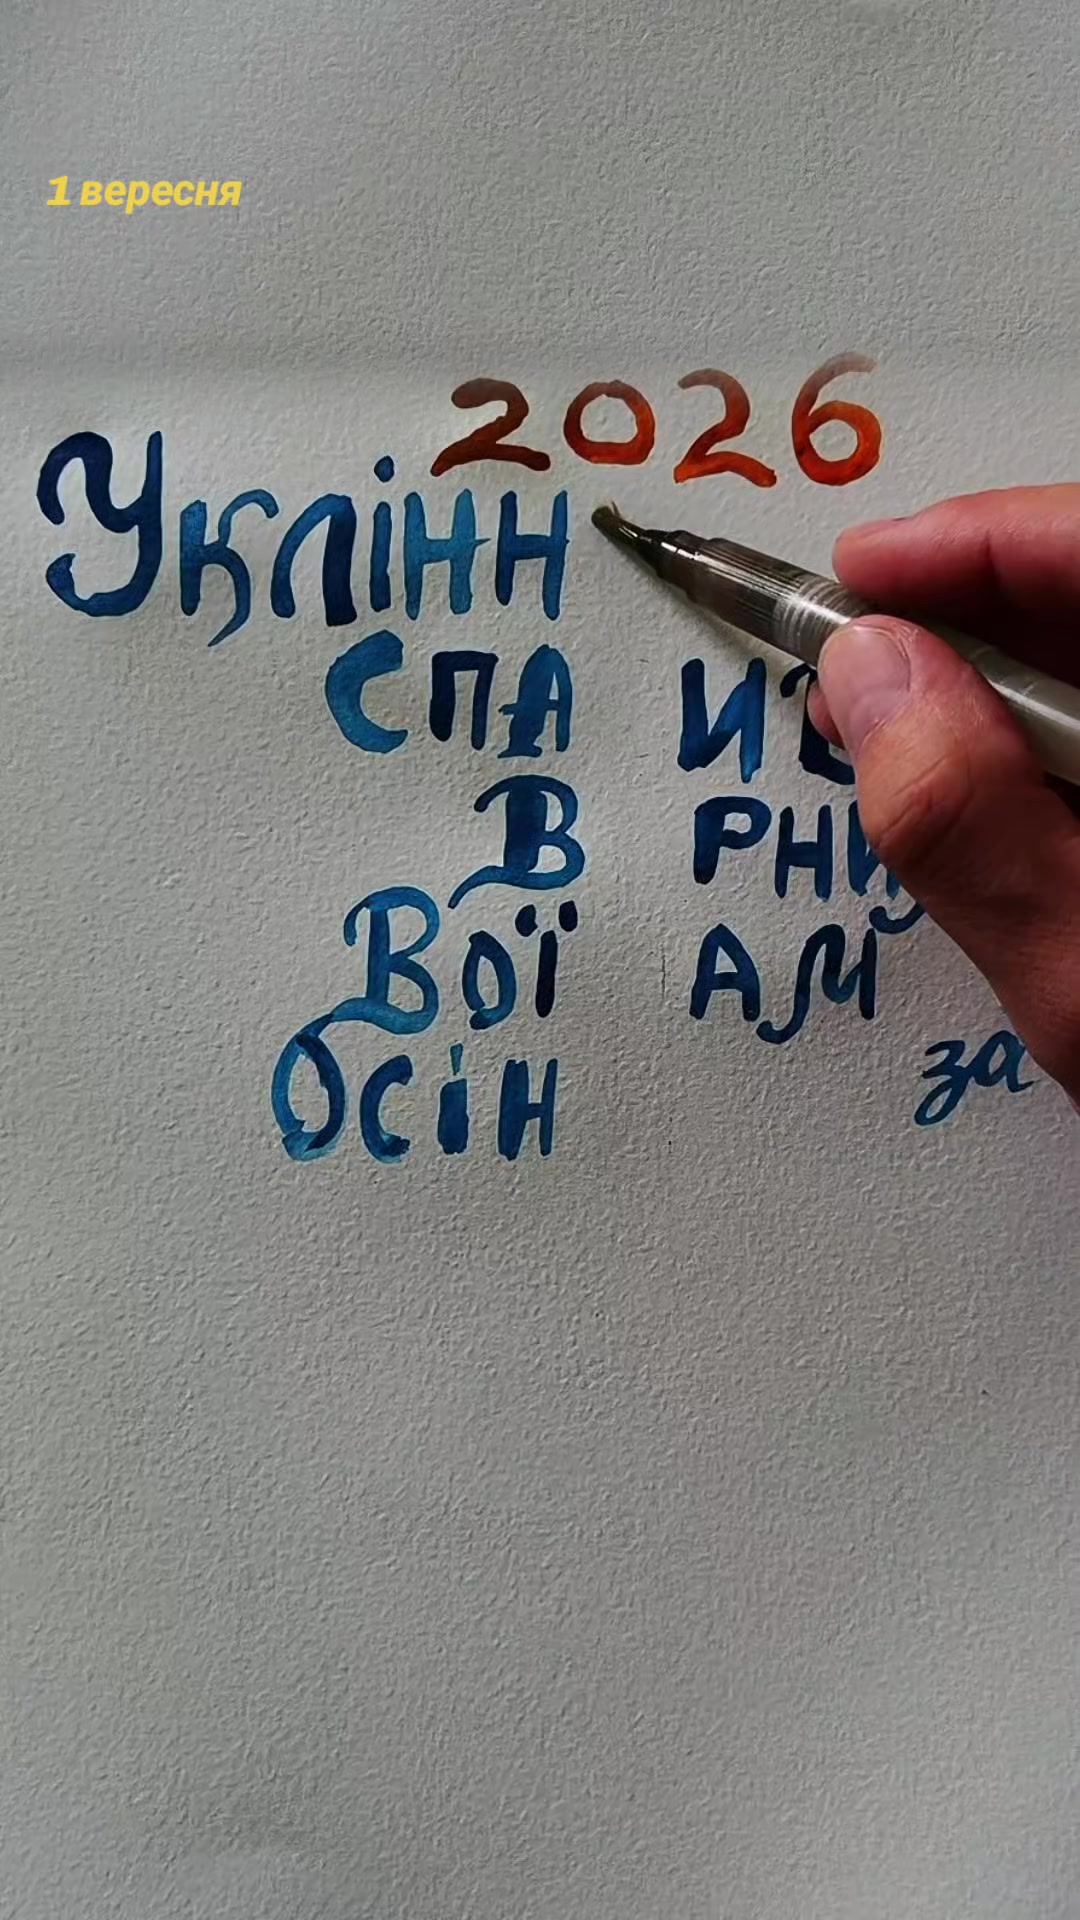 1 вересня
2026
Уклінн
спа
в рни
Вої ам
за
Осін